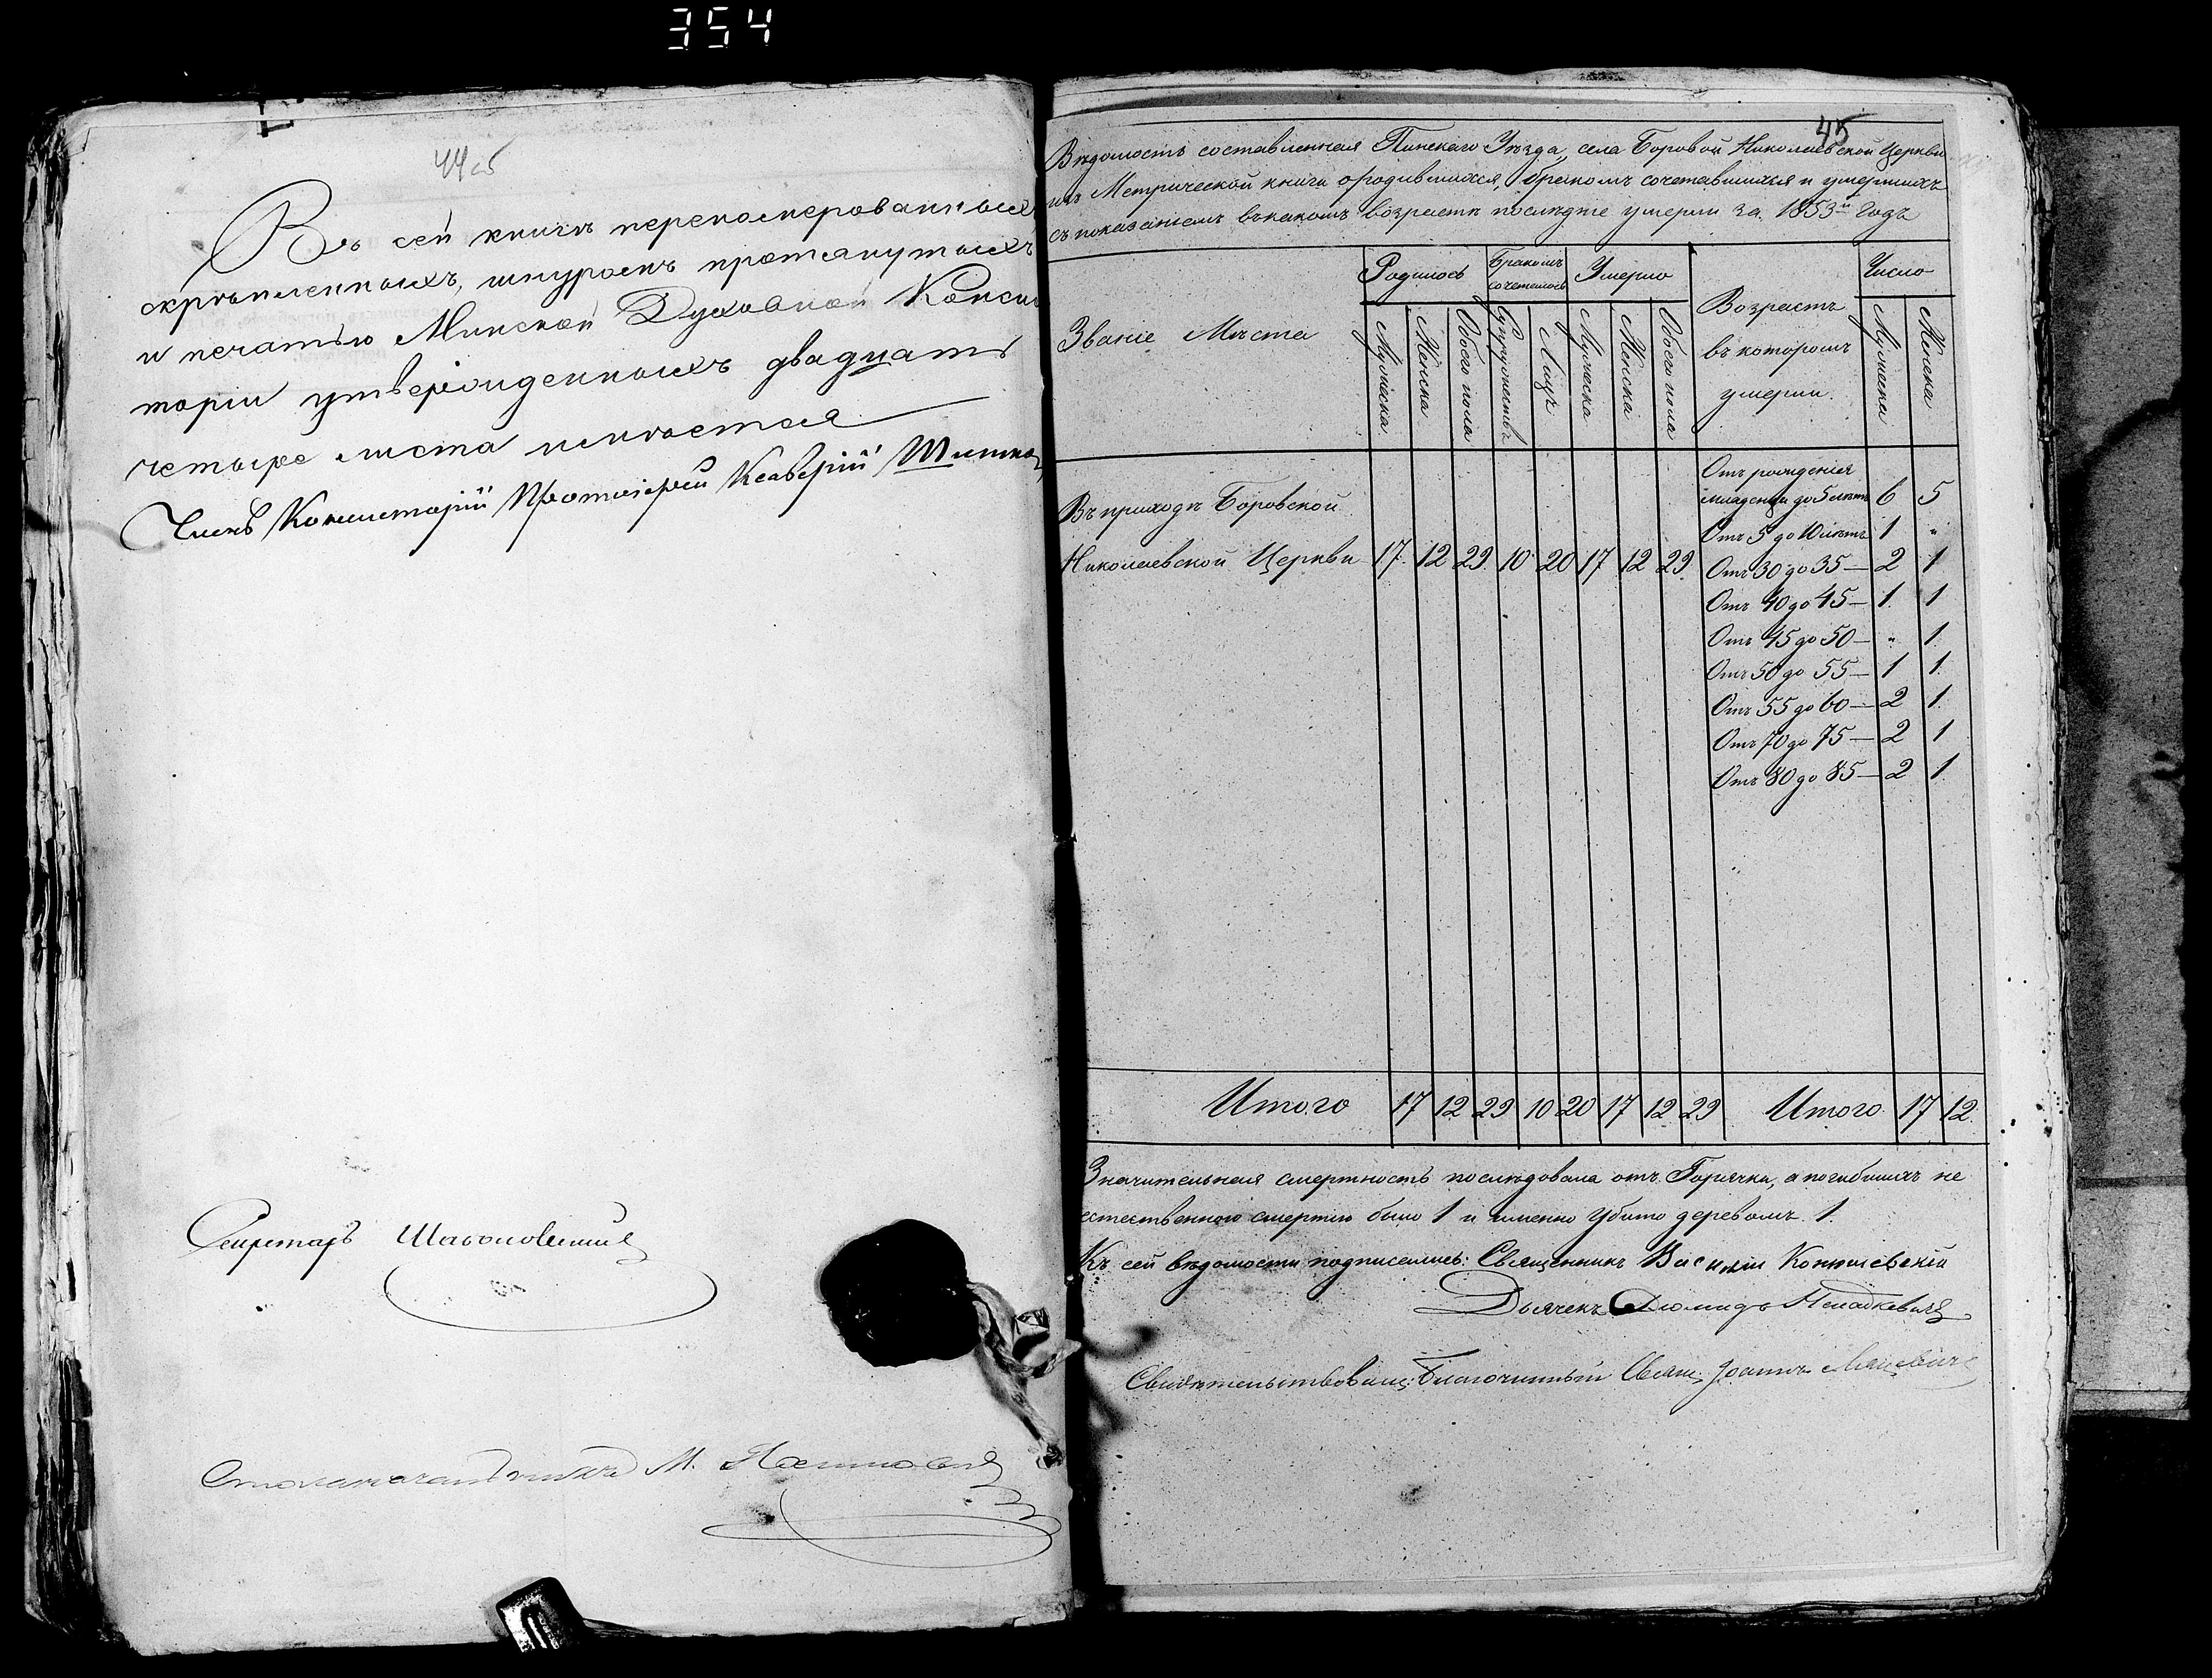 354
44 об
Въ сей книгѣ перепомерованныхъ
скрѣпленныхъ, шнуромъ протянутыхъ
и печатью Минской Духовной Консис
торіи утвержденныхъ двадцать
четыре листа имѣется
Членъ Консисторіи Протоіерей Ксаверій
Секретарь
Столоначальникъ М.
45
Вѣдомость составленная Пинскаго Уѣзда, села Боровой Николаевской Церкви
изъ Метрической книги о родившихся, бракомъ сочетавшихся и умершихъ
съ показаніемъ въ какомъ возрастѣ послѣдніе умерли за 1853й Годъ
Званіе Мѣста
Родилось
Бракомъ сочеталось
Умерло
Возрастъ въ которомъ умерли.
Число
Мужеска
Женска
Обоего пола
Супружествъ
Лицъ
Мужеска
Женска
Обоего пола
Мужеска
Женска
Въ приходѣ Боровской
Николаевской Церкви 17. 12 29. 10. 20 17 12 29.
Отъ рожденія
младенца до 5 лѣтъ 6 5
Отъ 5 до 10 лѣтъ 1 "
Отъ 30 до 35 — 2 1
Отъ 40 до 45 — 1. 1
Отъ 45 до 50 — " 1.
Отъ 50 до 55 — 1 1.
Отъ 55 до 60 — 2 1.
Отъ 70 до 75 — 2 1
Отъ 80 до 85 — 2 1.
Итого 17 12 29 10 20 17 12 29 Итого 17 12.
Значительная смертность послѣдовала отъ Горячки, а погибшихъ не
естественною смертію было 1 и именно Убито деревомъ 1.
Къ сей вѣдомости подписались: Священникъ Василій
Дьячекъ Діомидъ
Свидѣтельствовалъ: Благочинный Свящ: Іоаннъ